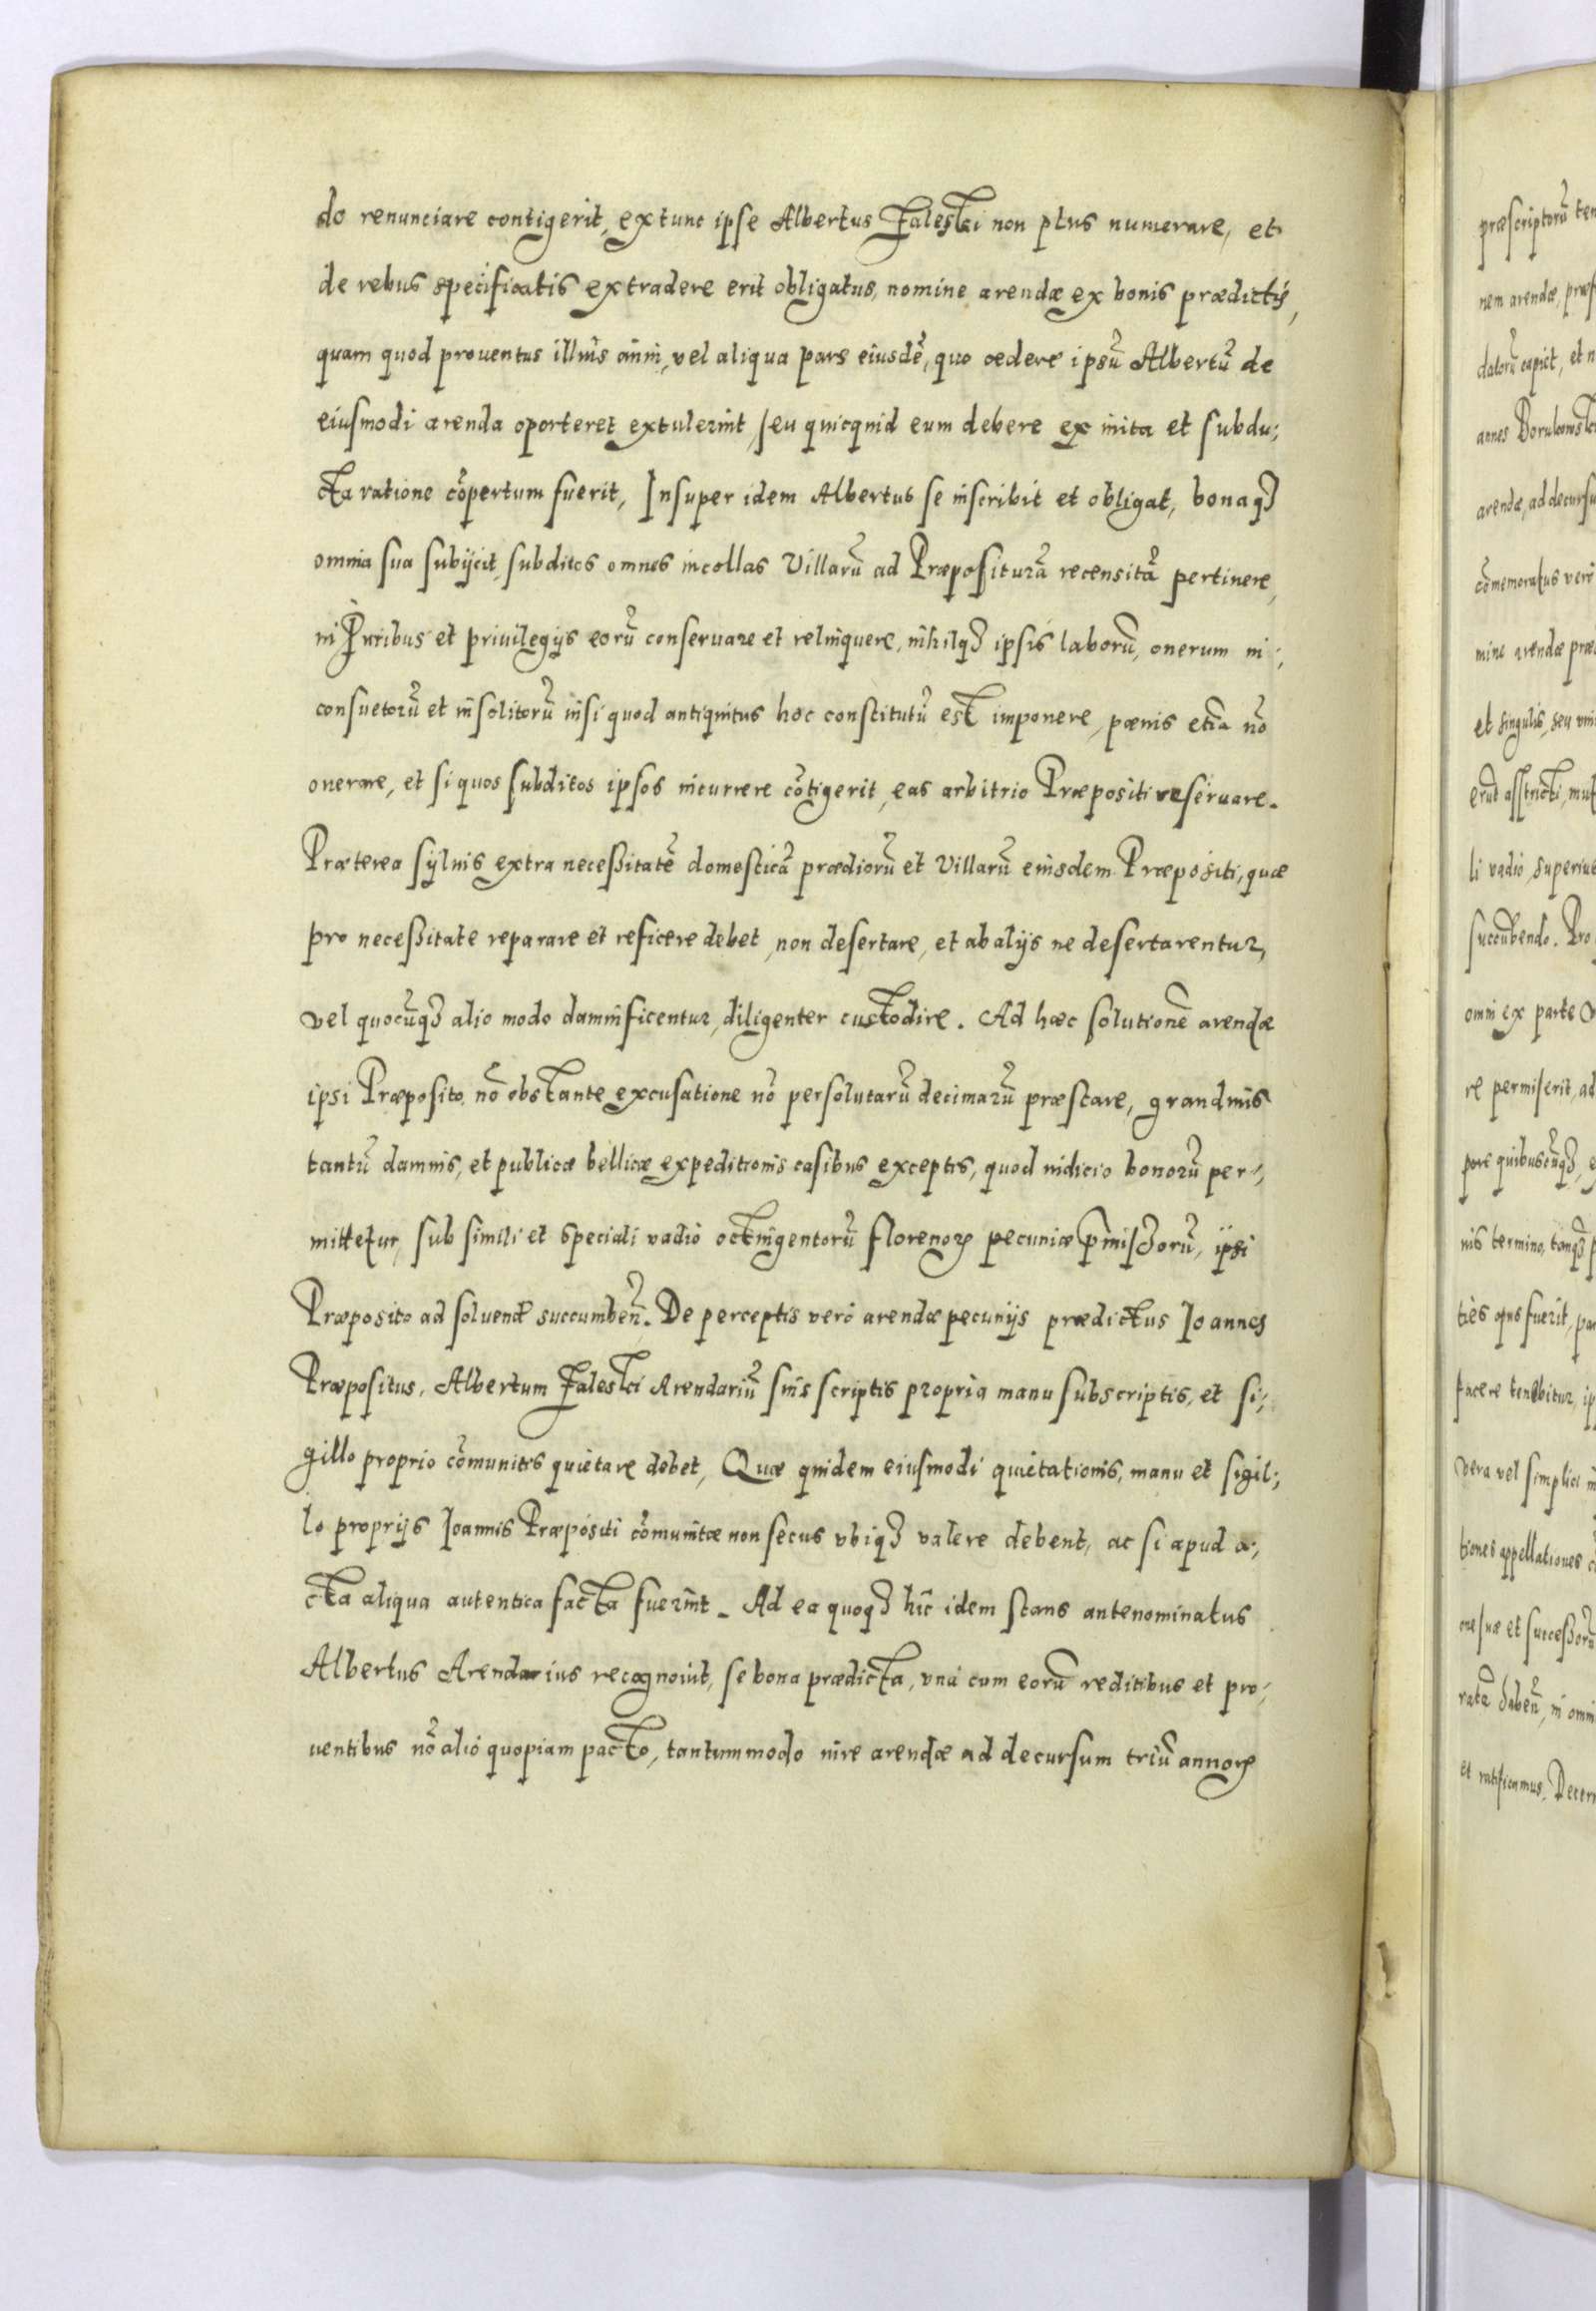 do renunciare contigerit, extunc ipse Albertus Zaleski non plus numerare, et
de rebus specificatis extradere erit obligatus, nomine arendæ ex bonis prædictis,
quam quod prouentus illius anni, vel aliqua pars eiusdẽ, quo cedere ipsũ Albertũ de
eiusmodi arenda oporteret extulerint, seu quicquid eum debere ex inita et subdu:
cta ratione cõpertum fuerit, Insuper idem Albertus se inscribit et obligat, bonaqꝫ
omnia sua subijcit, subditos omnes incollas Villarũ ad Præpositurã recensitã pertinere,
in Iuribus et priuilegijs eorũ conseruare et relinquere, nihilqꝫ ipsis laborũ, onerum in:
consuetorũ et insolitorũ nisi quod antiquitus hoc constitutũ est imponere, pœnis etiã nõ
onerare, et si quos subditos ipsos incurrere cõtigerit, eas arbitrio Præpositi reseruare.
Præterea syluis extra neceßitatẽ domesticã prædiorũ et Villarũ eiusdem Præpositi, quæ
pro neceßitate reparare et reficere debet, non desertare, et ab alijs ne desertarentur,
vel quocũqꝫ alio modo damnificentur, diligenter custodire. Ad hæc solutionẽ arendæ
ipsi Præposito nõ obstante excusatione nõ persolutarũ decimarũ præstare, grandinis
tantũ damnis, et publicæ bellicæ expeditionis casibus exceptis, quod iudicio bonorũ per:
mittetur, sub simili et speciali vadio octingentorũ florenoꝝ pecuniæ p̃missorũ, ipsi
Præposito ad soluend succumbeñ. De perceptis verò arendæ pecunijs prædictus Ioannes
Præpositus, Albertum Zaleski Arendariũ suis scriptis propria manu subscriptis, et si:
gillo proprio cõmunitis quietare debet, Quæ quidem eiusmodi quietationis, manu et sigil:
lo proprijs Ioannis Præpositi cõmunitæ non secus vbiqꝫ valere debent, ac si apud a:
cta aliqua autentica facta fuerint. Ad ea quoqꝫ hic idem stans antenominatus
Albertus Arendarius recognouit, se bona prædicta, vnà cum eorũ reditibus et pro:
uentibus nõ alio quopiam pacto, tantummodo iure arendæ ad decursum triũ annoꝝ
præscriptorũ
nem arendæ,
datorũ capiet, et
annes
arendæ, ad
cõmemoratus verò
mine arendæ
et singulis, seu
erũt asstricti,
li vadio, superius
succũbendo. Pro
omni ex parte
re permiserit, ad
pore quibuscũqꝫ,
nis termino, tanqꝫ
ties opus fuerit,
facere tenebitur,
vera vel simplici
tiones appellationes
one suæ et succeßorũ
ratã habeñ, in omni
et ratificamus.